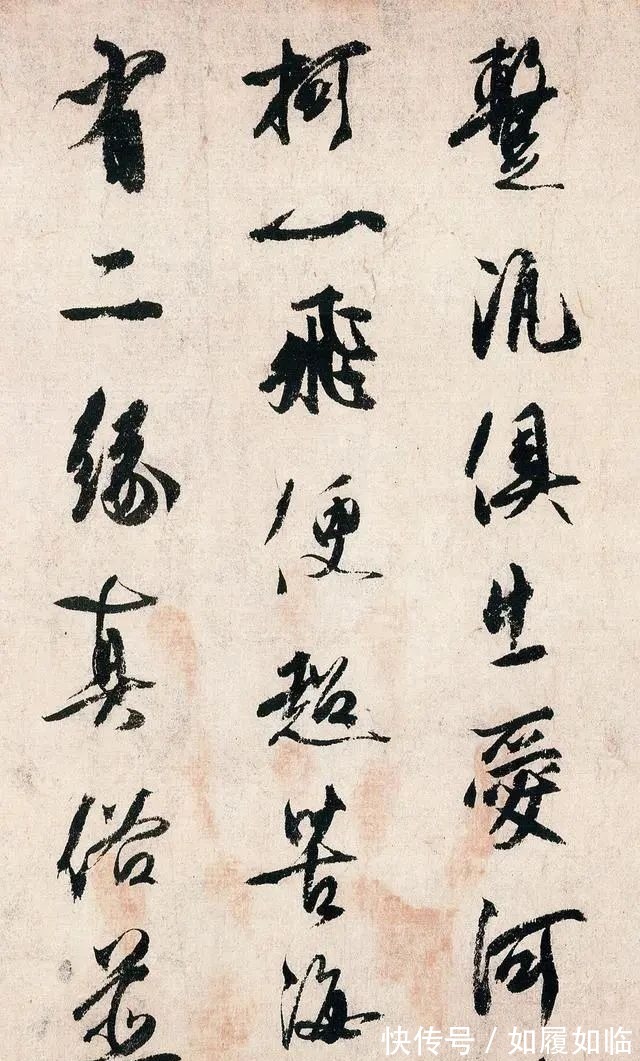 蹔汎俱生愛河
柯一飛便超苦海
省二緣真俗並
快传号 / 如履如临